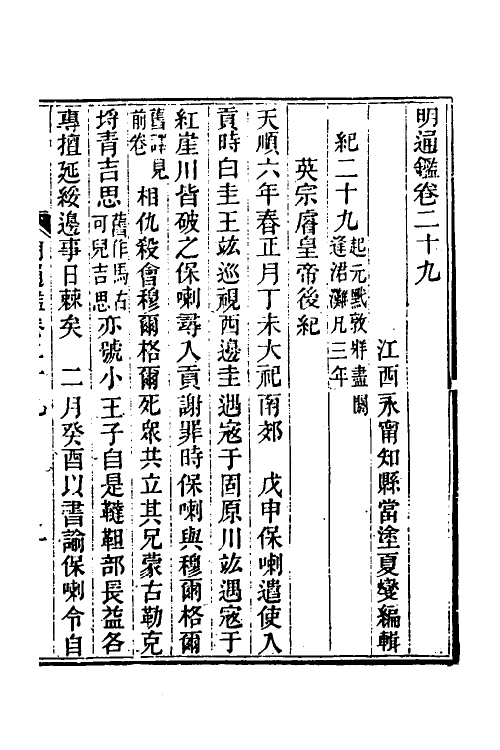 明通鑑卷二十九
江西永甯知縣當塗夏燮編輯
紀二十九起元黓敦牂盡閼逢涒灘凡三年
英宗睿皇帝後紀
天順六年春正月丁未大祀南郊　戊申保喇遣使入
貢時白圭王竑巡視西邊圭遇寇于固原川竑遇寇于
紅崖川皆破之保喇尋入貢謝罪時保喇與穆爾格爾
舊譯見前卷相仇殺會穆爾格爾死眾共立其兄蒙古勒克
埒青吉思舊作馬古可兒吉思亦號小王子自是韃靼部長益各
專擅延綏邊事日棘矣　二月癸酉以書諭保喇令自